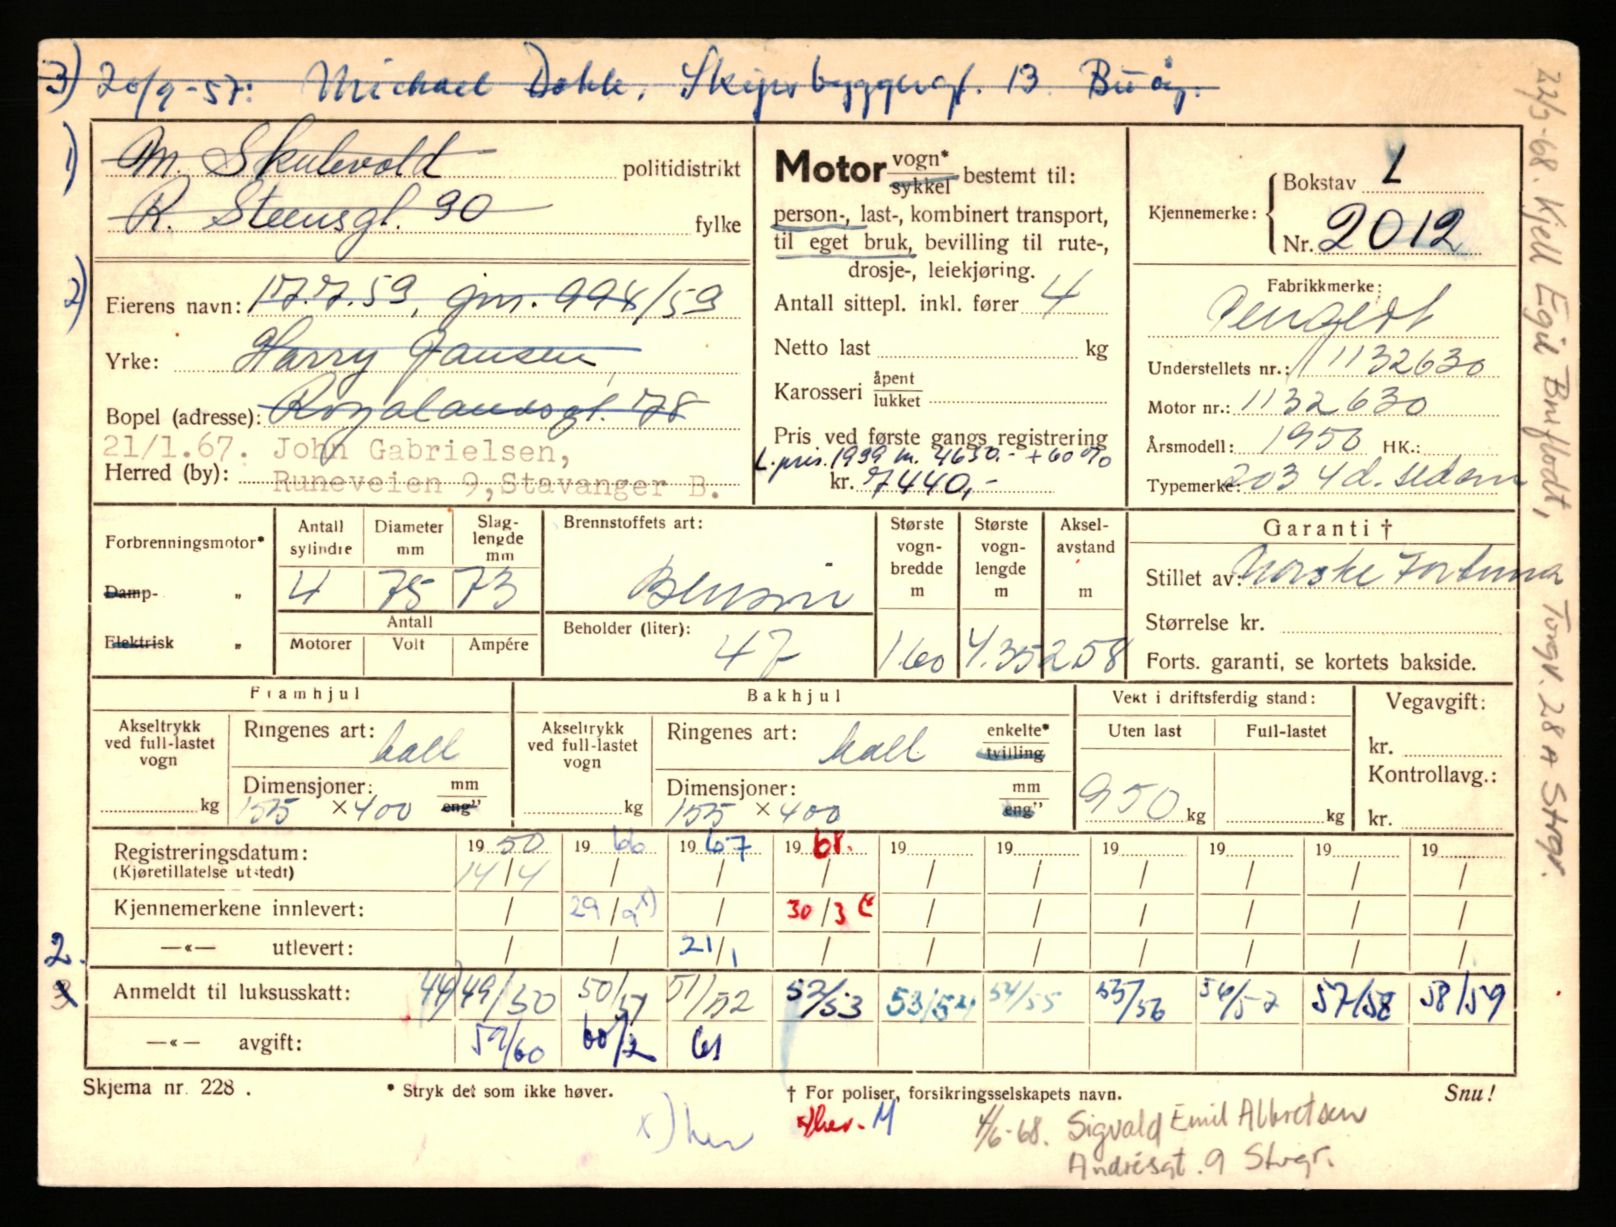 3) 20/9-57: Michael Dahle, Skipsbyggergt. 13 Buøy.
1) M. Skulevold politidistrikt
R. Steensgt. 90 fylke
2) Eierens navn: 17.7.59, jnr. 994/59
Yrke: Harry Jansen
Bopel (adresse): Rogalandsgt. 78
21/1.67. John Gabrielsen,
Herred (by): Runeveien 9, Stavanger B.
Motor vogn* sykkel bestemt til:
person-, last-, kombinert transport,
til eget bruk, bevilling til rute-,
drosje-, leiekjøring.
Antall sittepl. inkl. fører 4
Netto last kg
Karosseri åpent lukket
Pris ved første gangs registrering
L.pris. 1939 m. 4650.- + 60%
kr. 7440,-
Kjennemerke: Bokstav L
Nr. 2012
Fabrikkmerke:
Peugeot
Understellets nr.: 1132630
Motor nr.: 1132630
Årsmodell: 1950 HK.:
Typemerke: 203 4d. sedan
Forbrenningsmotor*
Damp- „
Elektrisk „
Antall sylindre
Diameter mm
Slaglengde mm
4 75 73
Antall
Motorer Volt Ampére
Brennstoffets art:
Bensin
Beholder (liter):
47
Største vognbredde m
1.60
Største vognlengde m
4.35
Akselavstand m
258
Garanti †
Stillet av: Norske Fortuna
Størrelse kr.
Forts. garanti, se kortets bakside.
Framhjul
Akseltrykk ved full-lastet vogn
kg
Ringenes art: hall
Dimensjoner: mm
155 × 400 eng"
Bakhjul
Akseltrykk ved full-lastet vogn
kg
Ringenes art: hall enkelte* tvilling
Dimensjoner: mm
155 × 400 eng"
Vekt i driftsferdig stand:
Uten last Full-lastet
950 kg kg
Vegavgift:
kr.
Kontrollavg.:
kr.
Registreringsdatum: 19 50 19 66 19 67 19 68. 19 19 19 19 19 19
(Kjøretillatelse utstedt) 14/4 / / / / / / / / /
Kjennemerkene innlevert: / 29/9 x) / 30/3 x) / / / / / /
2. —«— utlevert: / / 21/1 / / / / / / /
3 Anmeldt til luksusskatt: 44) 49/50 50/51 51/52 52/53 53/54 54/55 55/56 56/57 57/58 58/59
—«— avgift: 59/60 60/2 61
Skjema nr. 228. * Stryk det som ikke høver. † For poliser, forsikringsselskapets navn. Snu!
x) hev x) hev. M
4/6-68. Sigvald Emil Albretsen
Andrésgt. 9 Stvgr.
22/3-68. Kjell Egil Bruflodt, Tongv. 28 A Stvgr.